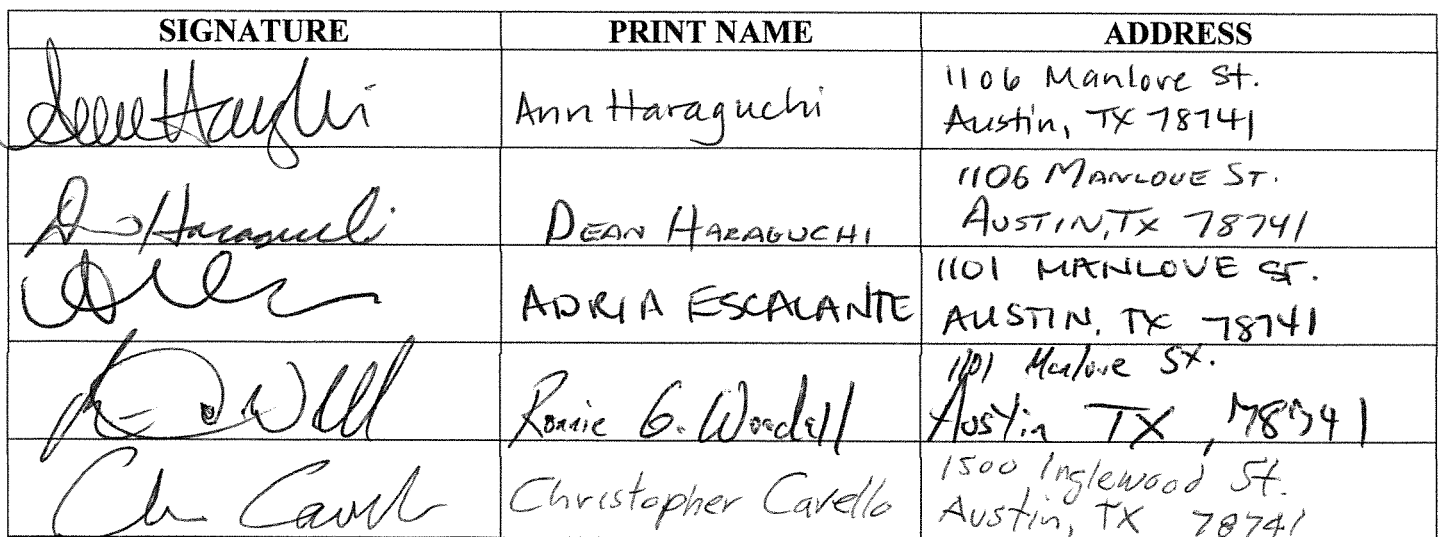 SIGNATURE PRINT NAME ADDRESS
Ann Haraguchi 1106 Manlove St.
Austin, TX 78741
Haraguchi DEAN HARAGUCHI 1106 MANLOVE ST.
AUSTIN, TX 78741
ADRIA ESCALANTE 1101 MANLOVE ST.
AUSTIN, TX 78741
Ronnie G. Woodall 1101 Manlove St.
Austin TX, 78741
Christopher Cavello 1500 Inglewood St.
Austin, TX 78741